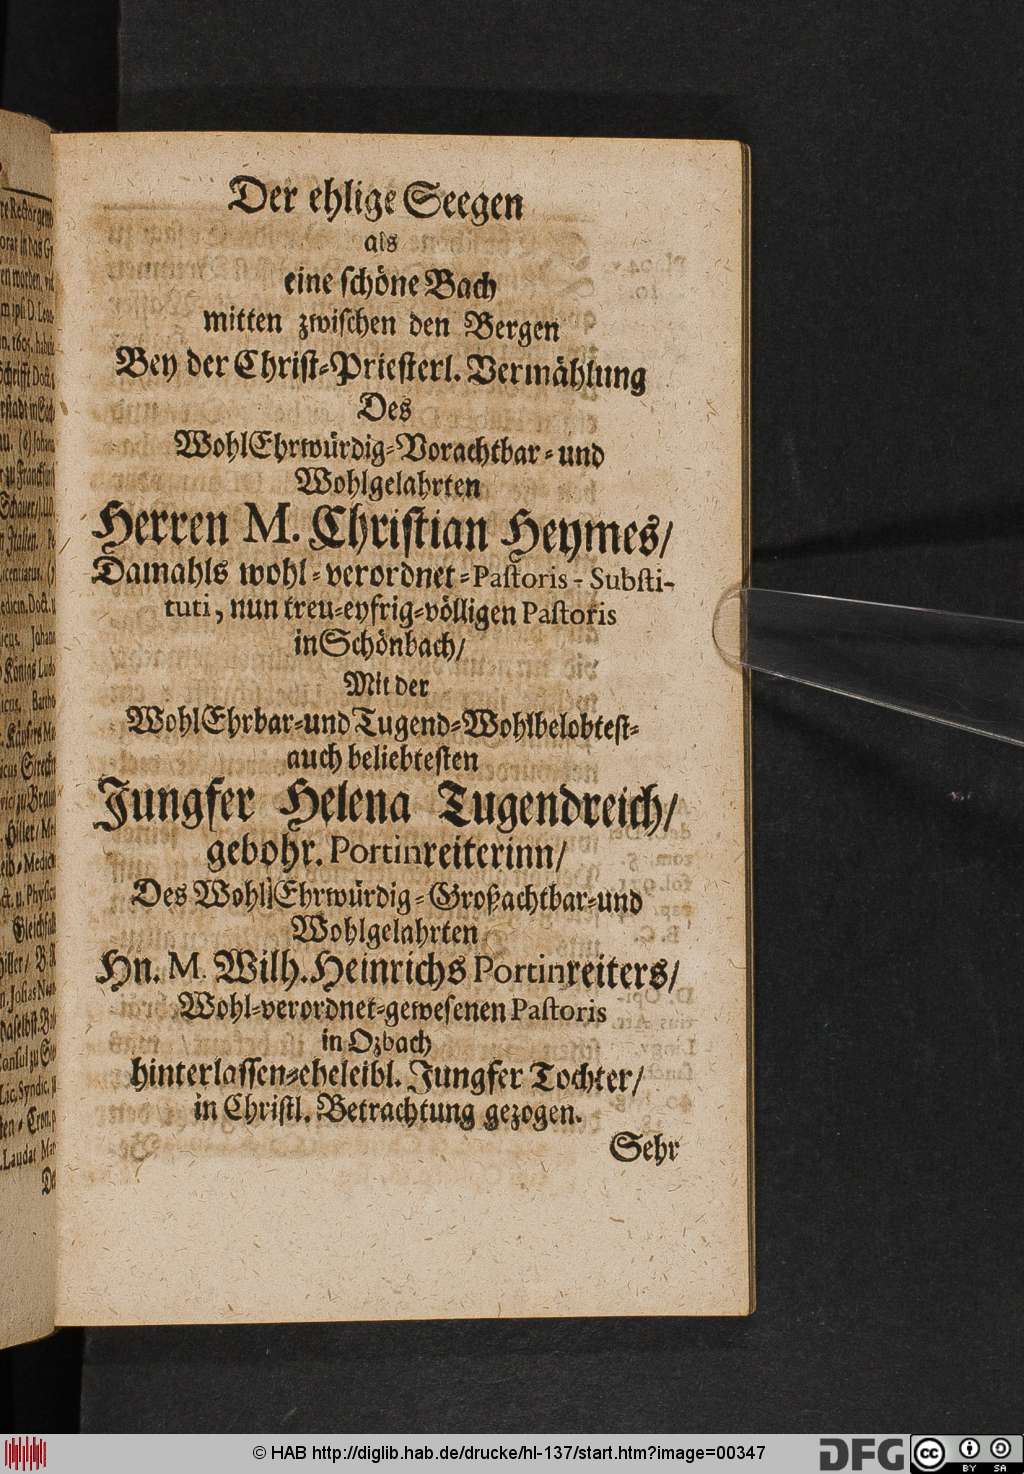 Der ehlige Seegen
als
eine schöne Bach
mitten zwischen den Bergen
Bey der Christ-Priesterl. Vermählung
Des
WohlEhrwürdig-Vorachtbar-und
Wohlgelahrten
Herren M. Christian Heymes/
Damahls wohl-verordnet-Pastoris-Substi-
tuti, nun treu-eyfrig-völligen Pastoris
in Schönbach/
Mit der
WohlEhrbar-und Tugend-Wohlbelobtest-
auch beliebtesten
Jungfer Helena Tugendreich/
gebohr. Portinreiterinn/
Des Wohl Ehrwürdig-Großachtbar-und
Wohlgelahrten
Hn. M. Wilh. Heinrichs Portinreiters/
Wohl-verordnet-gewesenen Pastoris
in Ozbach
hinterlassen-eheleibl. Jungfer Tochter/
in Christl. Betrachtung gezogen.
Sehr
© HAB http://diglib.hab.de/drucke/hl-137/start.htm?image=00347
DFG
cc
BY SA